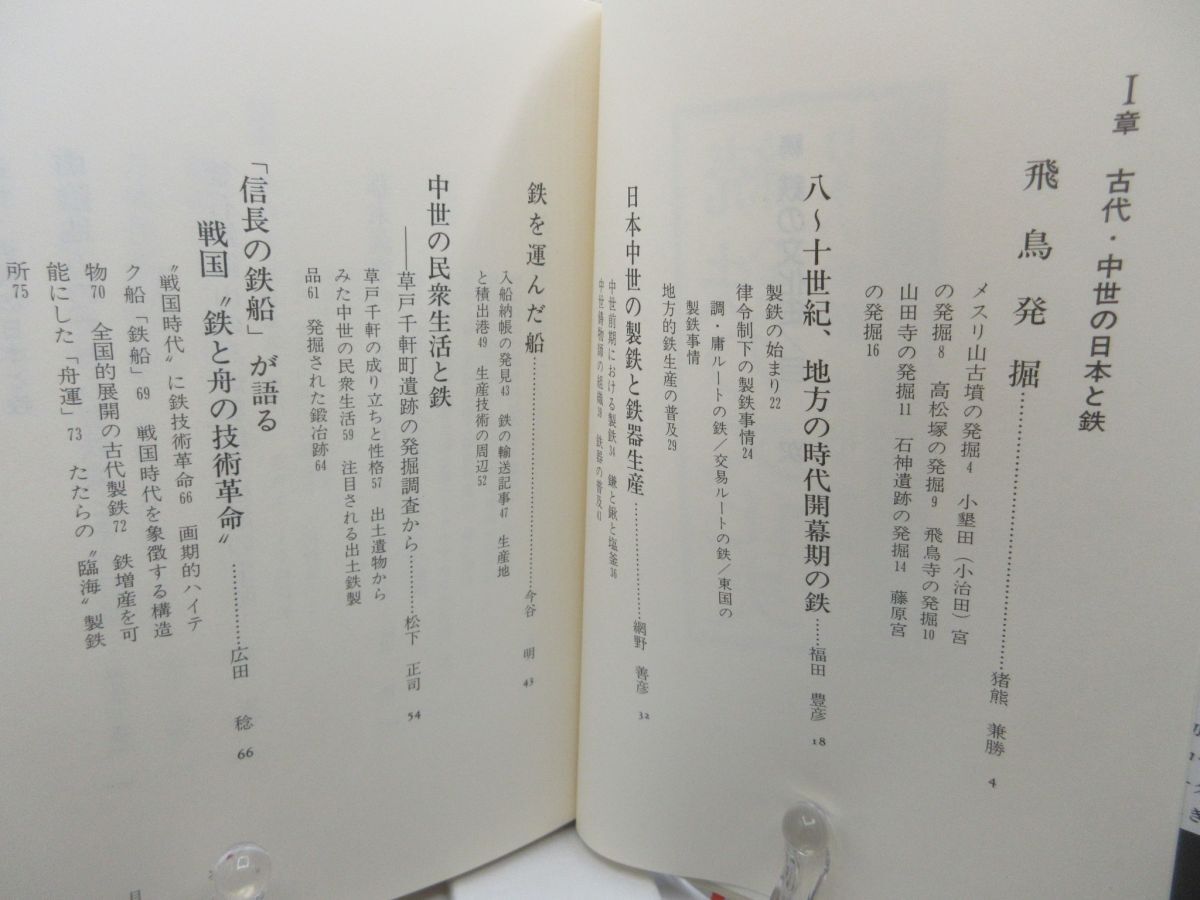 I章　古代・中世の日本と鉄
飛鳥発掘……………………………猪熊　兼勝　4
メスリ山古墳の発掘4　小墾田（小治田）宮
の発掘8　高松塚の発掘9　飛鳥寺の発掘10
山田寺の発掘11　石神遺跡の発掘14　藤原宮
の発掘16
八～十世紀、地方の時代開幕期の鉄……福田　豊彦　18
製鉄の始まり22
律令制下の製鉄事情24
調・庸ルートの鉄／交易ルートの鉄／東国の
製鉄事情
地方的鉄生産の普及29
日本中世の製鉄と鉄器生産……………網野　善彦　32
中世前期における製鉄34　鎌と鍬と塩釜36
中世鋳物師の組織39　鉄器の普及41
鉄を運んだ船…………………………今谷　明　43
入船納帳の発見43　鉄の輸送記事47　生産地
と積出港49　生産技術の周辺52
中世の民衆生活と鉄
――草戸千軒町遺跡の発掘調査から………松下　正司　54
草戸千軒の成り立ちと性格57　出土遺物から
みた中世の民衆生活59　注目される出土鉄製
品61　発掘された鍛冶跡64
「信長の鉄船」が語る
戦国〝鉄と舟の技術革命〟…………広田　稔　66
〝戦国時代〟に鉄技術革命66　画期的ハイテ
ク船「鉄船」69　戦国時代を象徴する構造
物70　全国的展開の古代製鉄72　鉄増産を可
能にした「舟運」73　たたらの〝臨海〟製鉄
所75